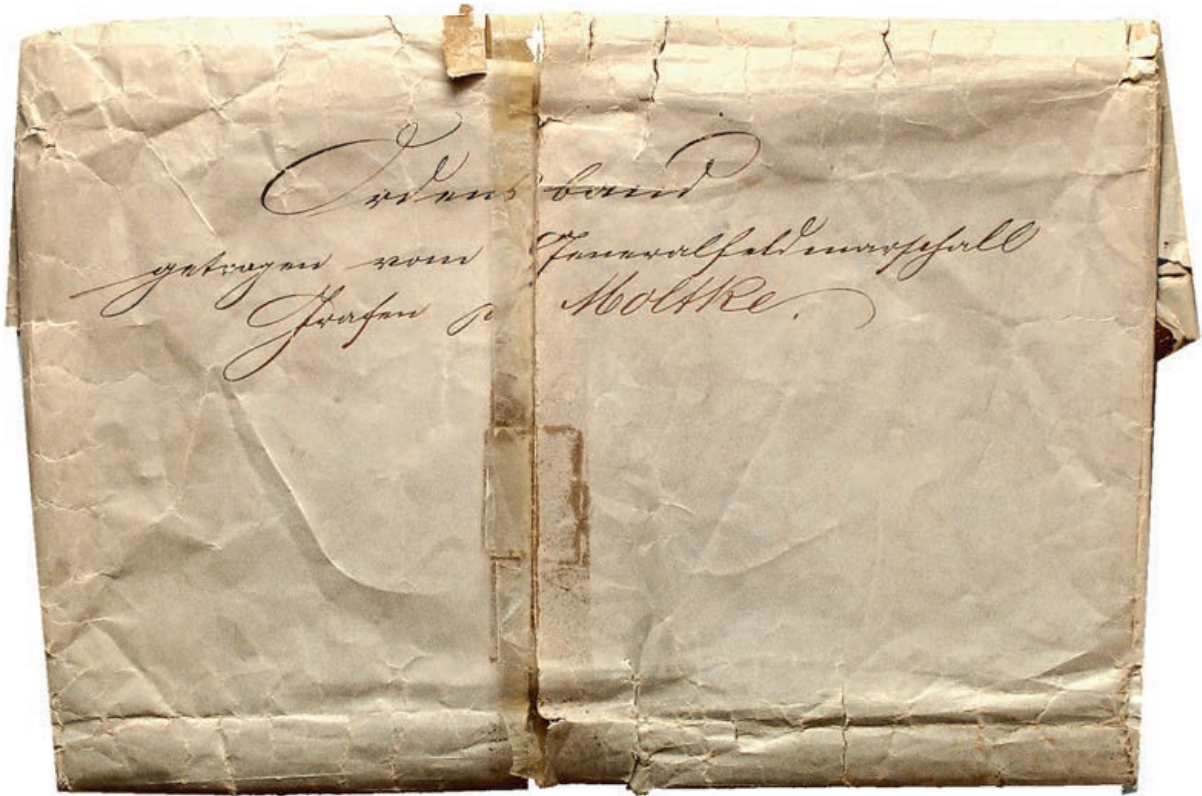 Ordensband
getragen vom Generalfeldmarschall
Grafen Moltke.